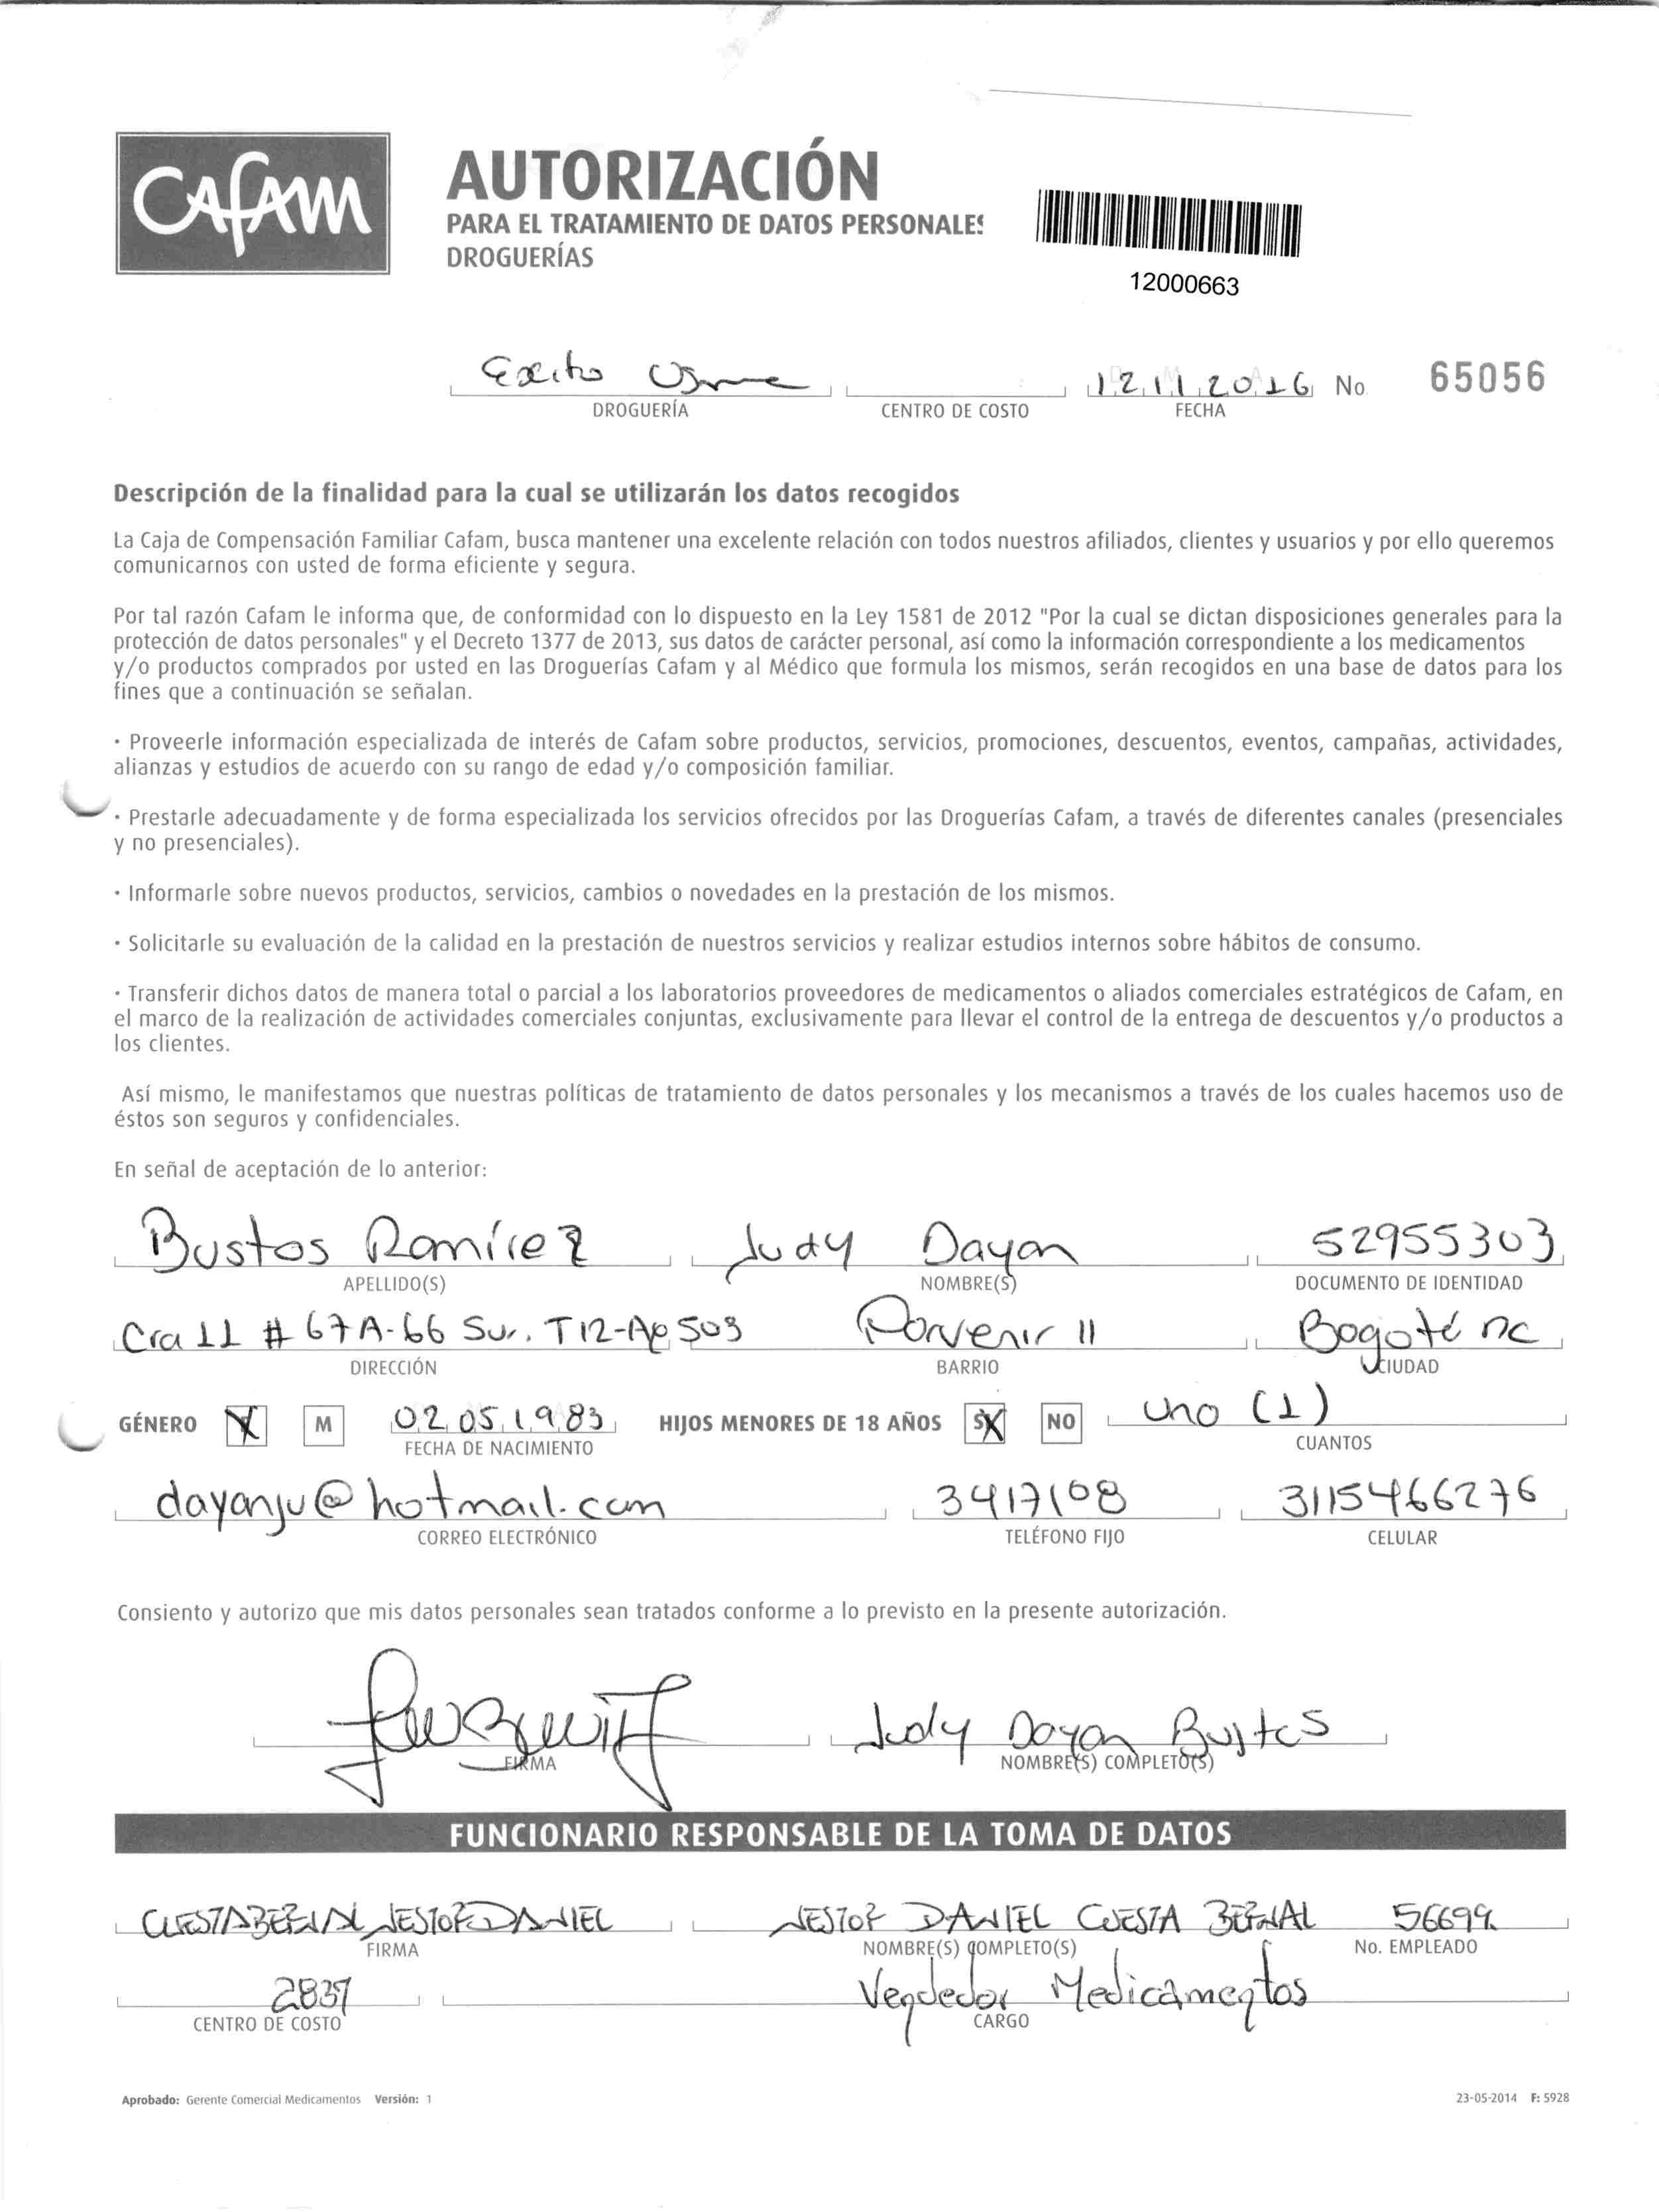 CAfAM
AUTORIZACIÓN
PARA EL TRATAMIENTO DE DATOS PERSONALES
DROGUERÍAS
12000663
Exito Usme 12 11 2016 No 65056
DROGUERÍA CENTRO DE COSTO FECHA
Descripción de la finalidad para la cual se utilizarán los datos recogidos
La Caja de Compensación Familiar Cafam, busca mantener una excelente relación con todos nuestros afiliados, clientes y usuarios y por ello queremos
comunicarnos con usted de forma eficiente y segura.
Por tal razón Cafam le informa que, de conformidad con lo dispuesto en la Ley 1581 de 2012 "Por la cual se dictan disposiciones generales para la
protección de datos personales" y el Decreto 1377 de 2013, sus datos de carácter personal, así como la información correspondiente a los medicamentos
y/o productos comprados por usted en las Droguerías Cafam y al Médico que formula los mismos, serán recogidos en una base de datos para los
fines que a continuación se señalan.
· Proveerle información especializada de interés de Cafam sobre productos, servicios, promociones, descuentos, eventos, campañas, actividades,
alianzas y estudios de acuerdo con su rango de edad y/o composición familiar.
· Prestarle adecuadamente y de forma especializada los servicios ofrecidos por las Droguerías Cafam, a través de diferentes canales (presenciales
y no presenciales).
· Informarle sobre nuevos productos, servicios, cambios o novedades en la prestación de los mismos.
· Solicitarle su evaluación de la calidad en la prestación de nuestros servicios y realizar estudios internos sobre hábitos de consumo.
· Transferir dichos datos de manera total o parcial a los laboratorios proveedores de medicamentos o aliados comerciales estratégicos de Cafam, en
el marco de la realización de actividades comerciales conjuntas, exclusivamente para llevar el control de la entrega de descuentos y/o productos a
los clientes.
Así mismo, le manifestamos que nuestras políticas de tratamiento de datos personales y los mecanismos a través de los cuales hacemos uso de
éstos son seguros y confidenciales.
En señal de aceptación de lo anterior:
Bustos Ramírez Judy Dayan 52955303
APELLIDO(S) NOMBRE(S) DOCUMENTO DE IDENTIDAD
Cra 11 # 67A-66 Sur. T12-Ap 503 Porvenir II Bogotá DC
DIRECCIÓN BARRIO CIUDAD
GÉNERO X M 02 05 1983 HIJOS MENORES DE 18 AÑOS SX NO uno (1)
FECHA DE NACIMIENTO CUANTOS
dayanju@hotmail.com 3417108 3115466276
CORREO ELECTRÓNICO TELÉFONO FIJO CELULAR
Consiento y autorizo que mis datos personales sean tratados conforme a lo previsto en la presente autorización.
Judy Dayan Bustos
FIRMA NOMBRE(S) COMPLETO(S)
FUNCIONARIO RESPONSABLE DE LA TOMA DE DATOS
CUESTA BERNAL NESTOR DANIEL NESTOR DANIEL CUESTA BERNAL 56699
FIRMA NOMBRE(S) COMPLETO(S) No. EMPLEADO
2837 Vendedor Medicamentos
CENTRO DE COSTO CARGO
Aprobado: Gerente Comercial Medicamentos Versión: 1 23-05-2014 F: 5928